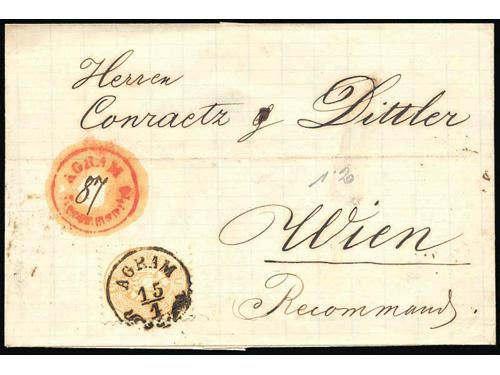 Herren
Conraetz & Dittler
AGRAM
87
Recommandirt
1·20
Wien
AGRAM
15
1
Recommand